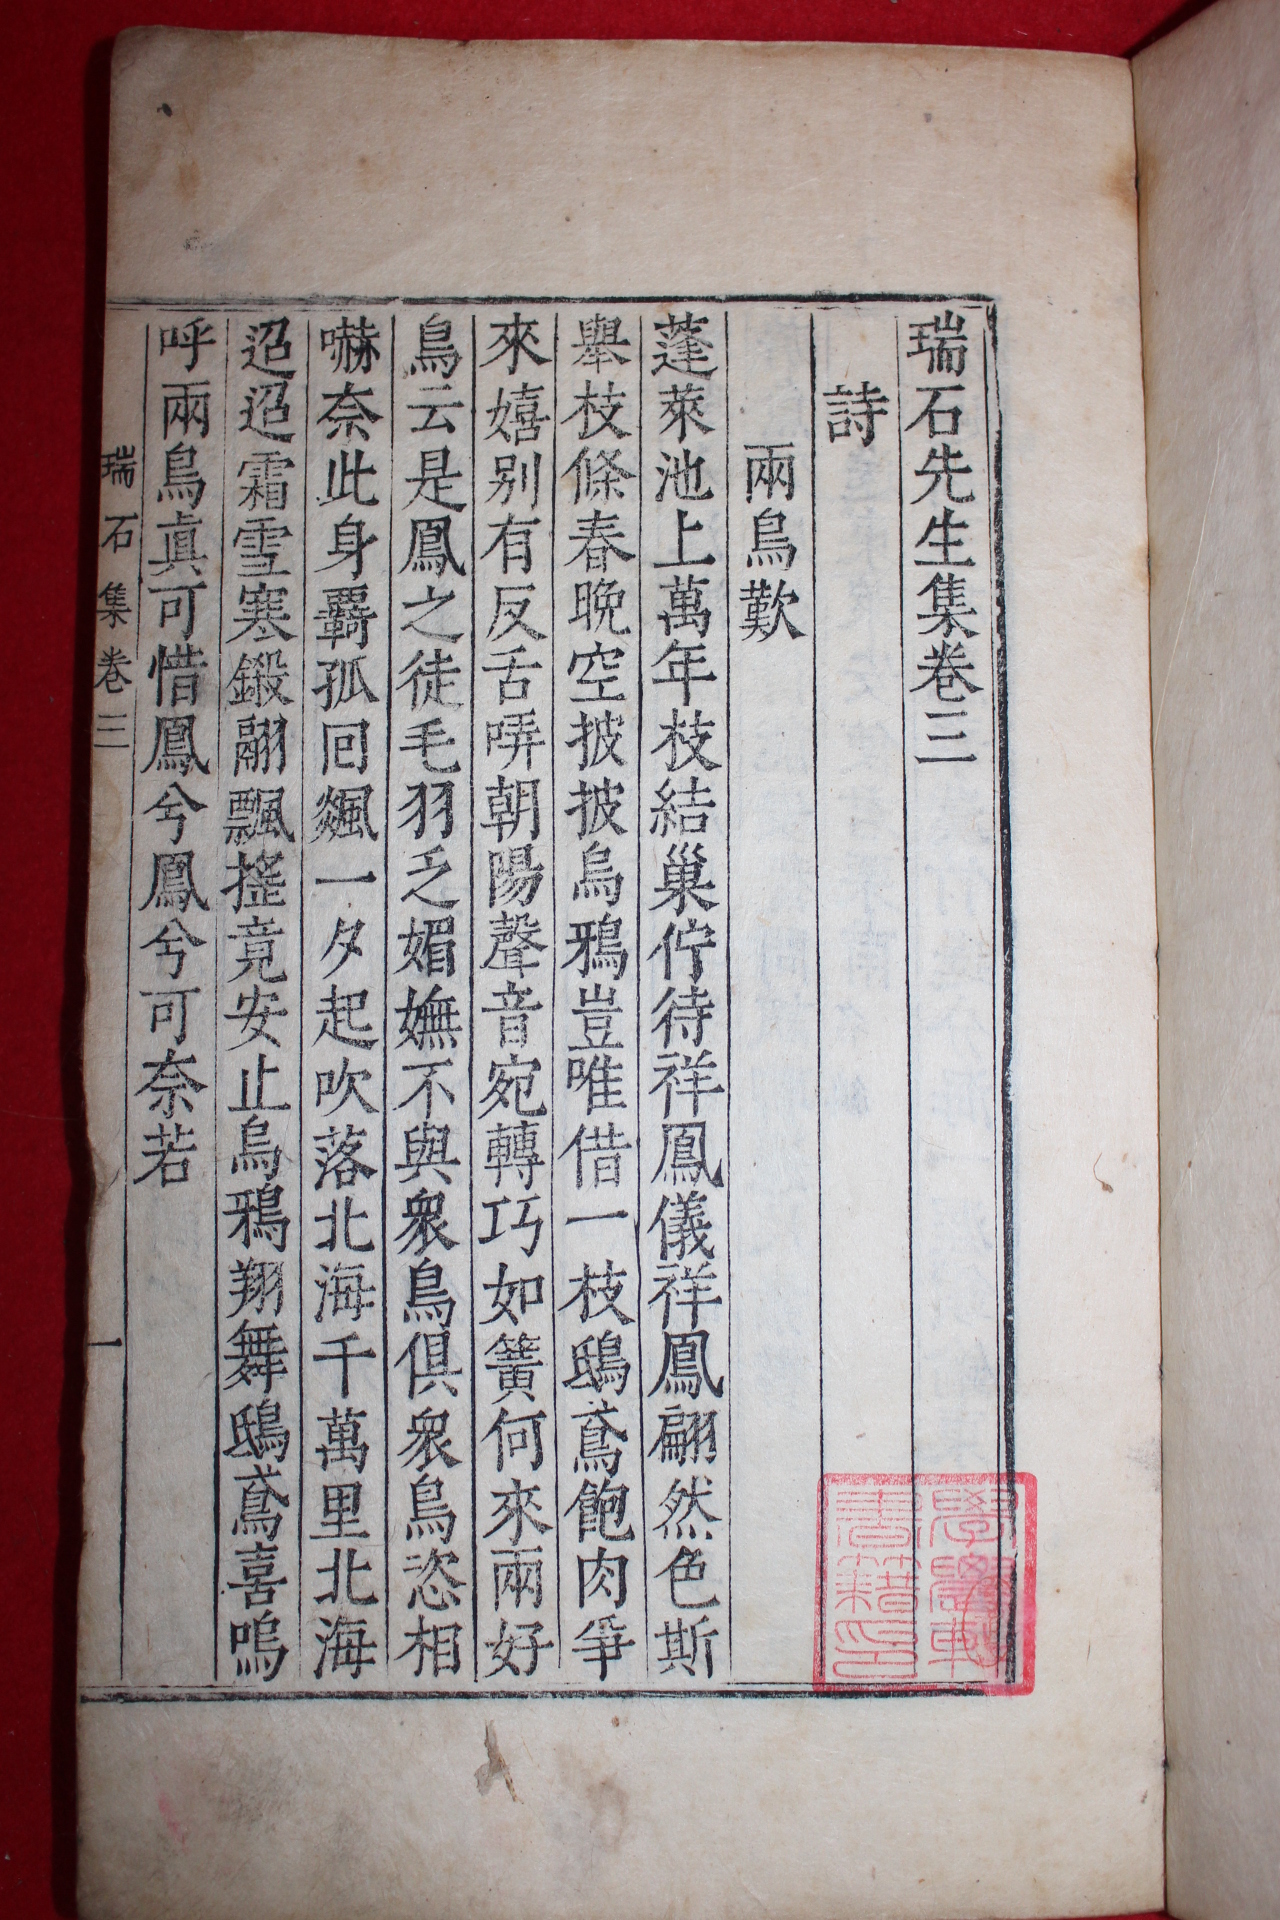 瑞石先生集卷三
詩
兩鳥歎
蓬萊池上萬年枝結巢佇待祥鳳儀祥鳳翩然色斯
舉枝條春晩空披披烏鴉豈唯借一枝鴟鳶飽肉爭
來嬉别有反舌哢朝陽聲音宛轉巧如簧何來兩好
鳥云是鳳之徒毛羽乏媚嫵不與衆鳥俱衆鳥恣相
嚇奈此身覊孤囘飈一夕起吹落北海千萬里北海
迢迢霜雪寒鎩翮飄搖竟安止烏鴉翔舞鴟鳶喜嗚
呼兩鳥眞可惜鳳兮鳳兮可奈若
瑞石集卷三
一
書籍印